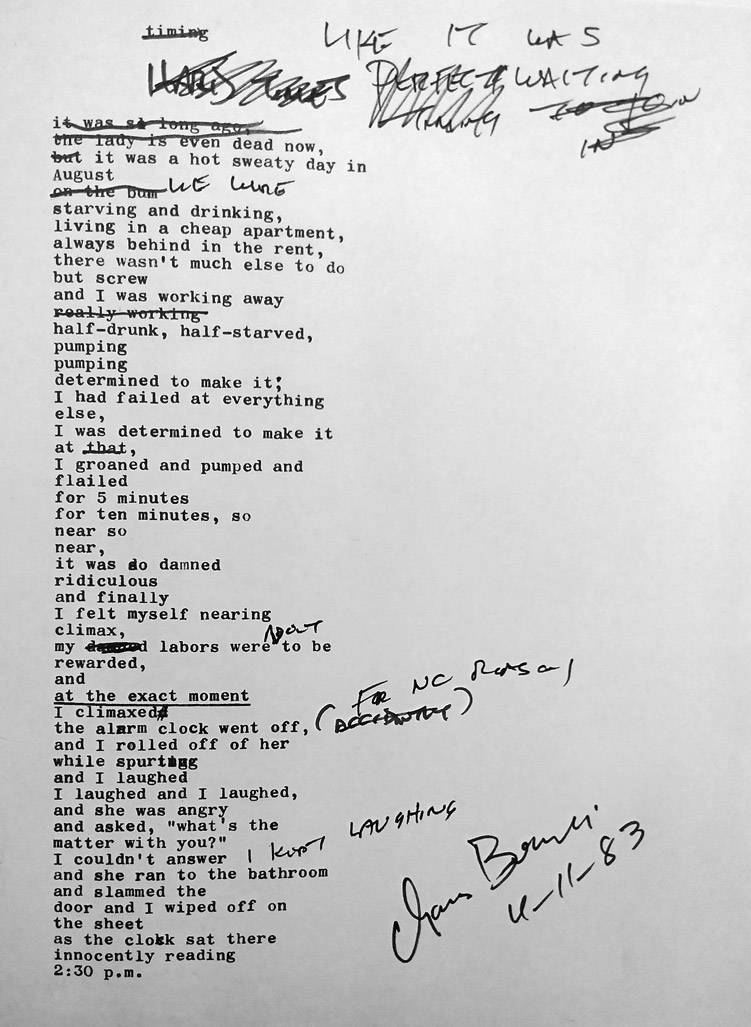 timing
LIKE IT WAS
PERFECT WAITING
TIMING TO JOIN
IN
it was so long ago,
the lady is even dead now,
but it was a hot sweaty day in
August
on the bum WE WERE
starving and drinking,
living in a cheap apartment,
always behind in the rent,
there wasn't much else to do
but screw
and I was working away
really working
half-drunk, half-starved,
pumping
pumping
determined to make it;
I had failed at everything
else,
I was determined to make it
at that,
I groaned and pumped and
flailed
for 5 minutes
for ten minutes, so
near so
near,
it was so damned
ridiculous
and finally
I felt myself nearing
climax,
my labors were ABOUT to be
rewarded,
and
at the exact moment
I climaxed
the alarm clock went off, (FOR NO REASON)
and I rolled off of her
while spurting
and I laughed
I laughed and I laughed,
and she was angry
and asked, "what's the
matter with you?"
I couldn't answer I KEPT LAUGHING
and she ran to the bathroom
and slammed the
door and I wiped off on
the sheet
as the clock sat there
innocently reading
2:30 p.m.
4-11-83